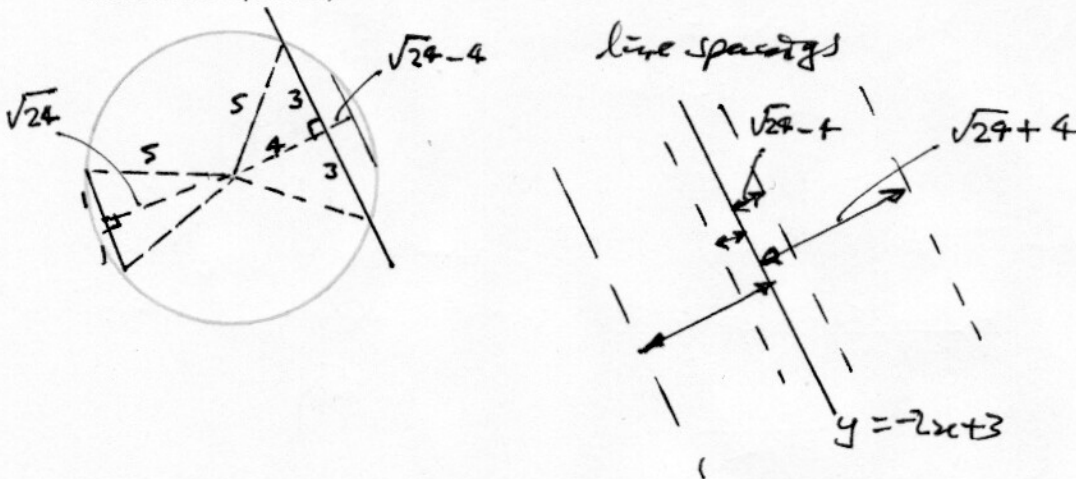 √24
5
5
3
4
3
√24-4
line spacings
√24-4
√24+4
y=-2x+3